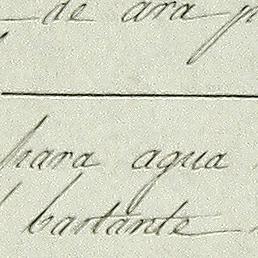 de ara
para agua
bastante